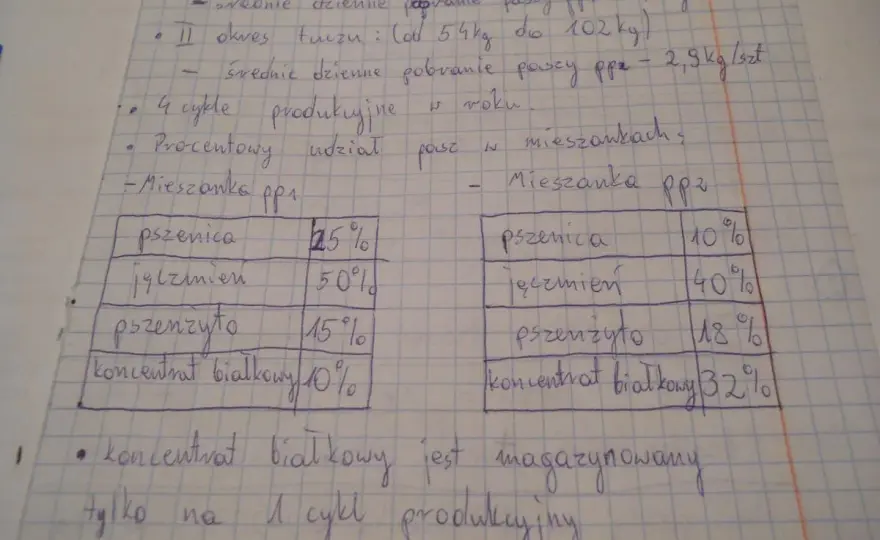 - średnie dzienne pobranie paszy
• II okres tuczu: (od 54kg do 102 kg)
- średnie dzienne pobranie paszy pp2 - 2,9kg/szt
• 4 cykle produkcyjne w roku.
• Procentowy udział pasz w mieszankach:
- Mieszanka pp1
- Mieszanka pp2
pszenica 25%
jęczmień 50%
pszenżyto 15%
koncentrat białkowy 10%
pszenica 10%
jęczmień 40%
pszenżyto 18%
koncentrat białkowy 32%
• koncentrat białkowy jest magazynowany
tylko na 1 cykl produkcyjny